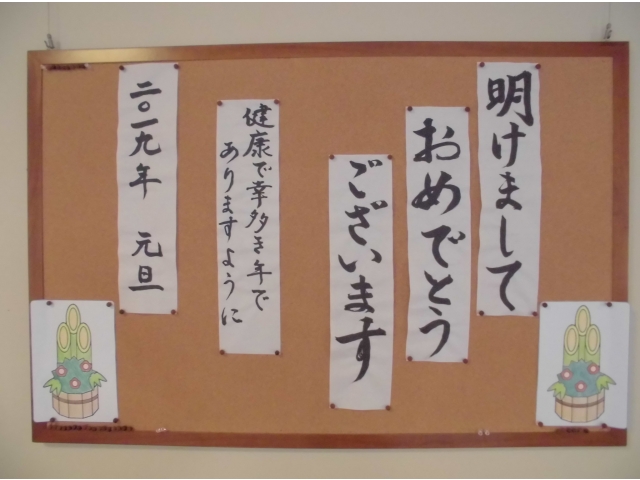 明けまして
おめでとう
ございます
健康で幸多き年で
ありますように
二〇一九年 元旦